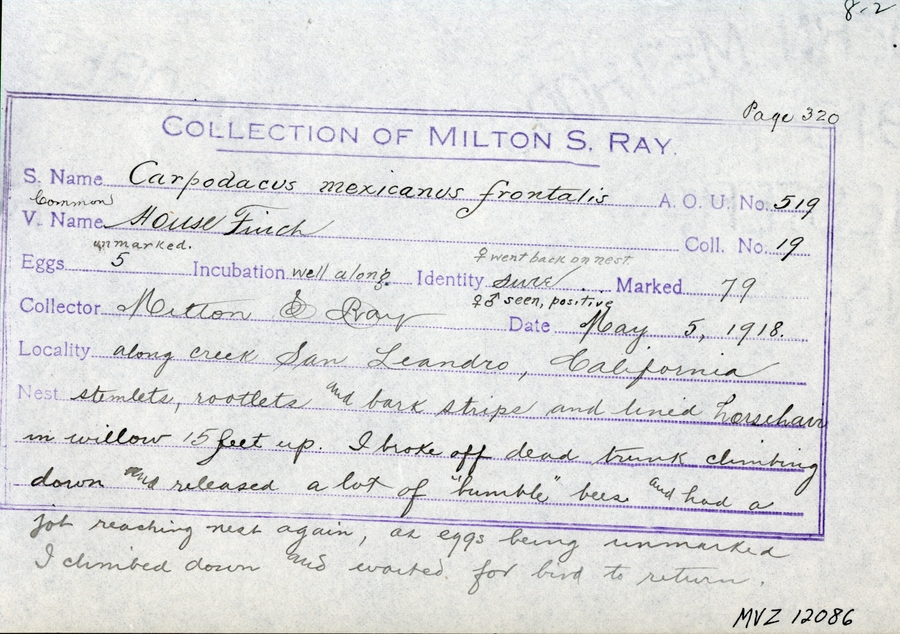 8-2
Page 320
COLLECTION OF MILTON S. RAY.
S. Name Carpodacus mexicanus frontalis A. O. U. No. 519
Common
V. Name House Finch Coll. No. 19
unmarked. ♀ went back on nest
Eggs 5 Incubation well along. Identity sure Marked 79
♀♂ seen, positive
Collector Milton S Ray Date May 5, 1918.
Locality along creek San Leandro, California
Nest stemlets, rootlets and bark strips and lined horsehair
in willow 15 feet up. I broke off dead trunk climbing
down and released a lot of "bumble" bees and had a
job reaching nest again, as eggs being unmarked
I climbed down and waited for bird to return.
MVZ 12086